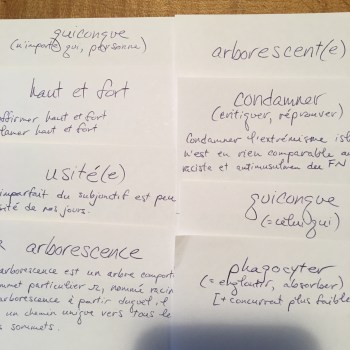 quiconque
(n'importe qui, personne)
haut et fort
affirmer haut et fort
clamer haut et fort
usité(e)
imparfait du subjonctif est peu
usité de nos jours.
arborescence
arborescence est un arbre comport
sommet particulier r, nommé racin
arborescence à partir duquel, il
un chemin unique vers tous le
sommets.
arborescent(e)
condamner
(critiquer, réprouver)
Condamner l'extrémisme isl
n'est en rien comparable au
raciste et antimusulman du FN
quiconque
(=celui qui)
phagocyter
(= engloutir, absorber)
[+ concurrent plus faible